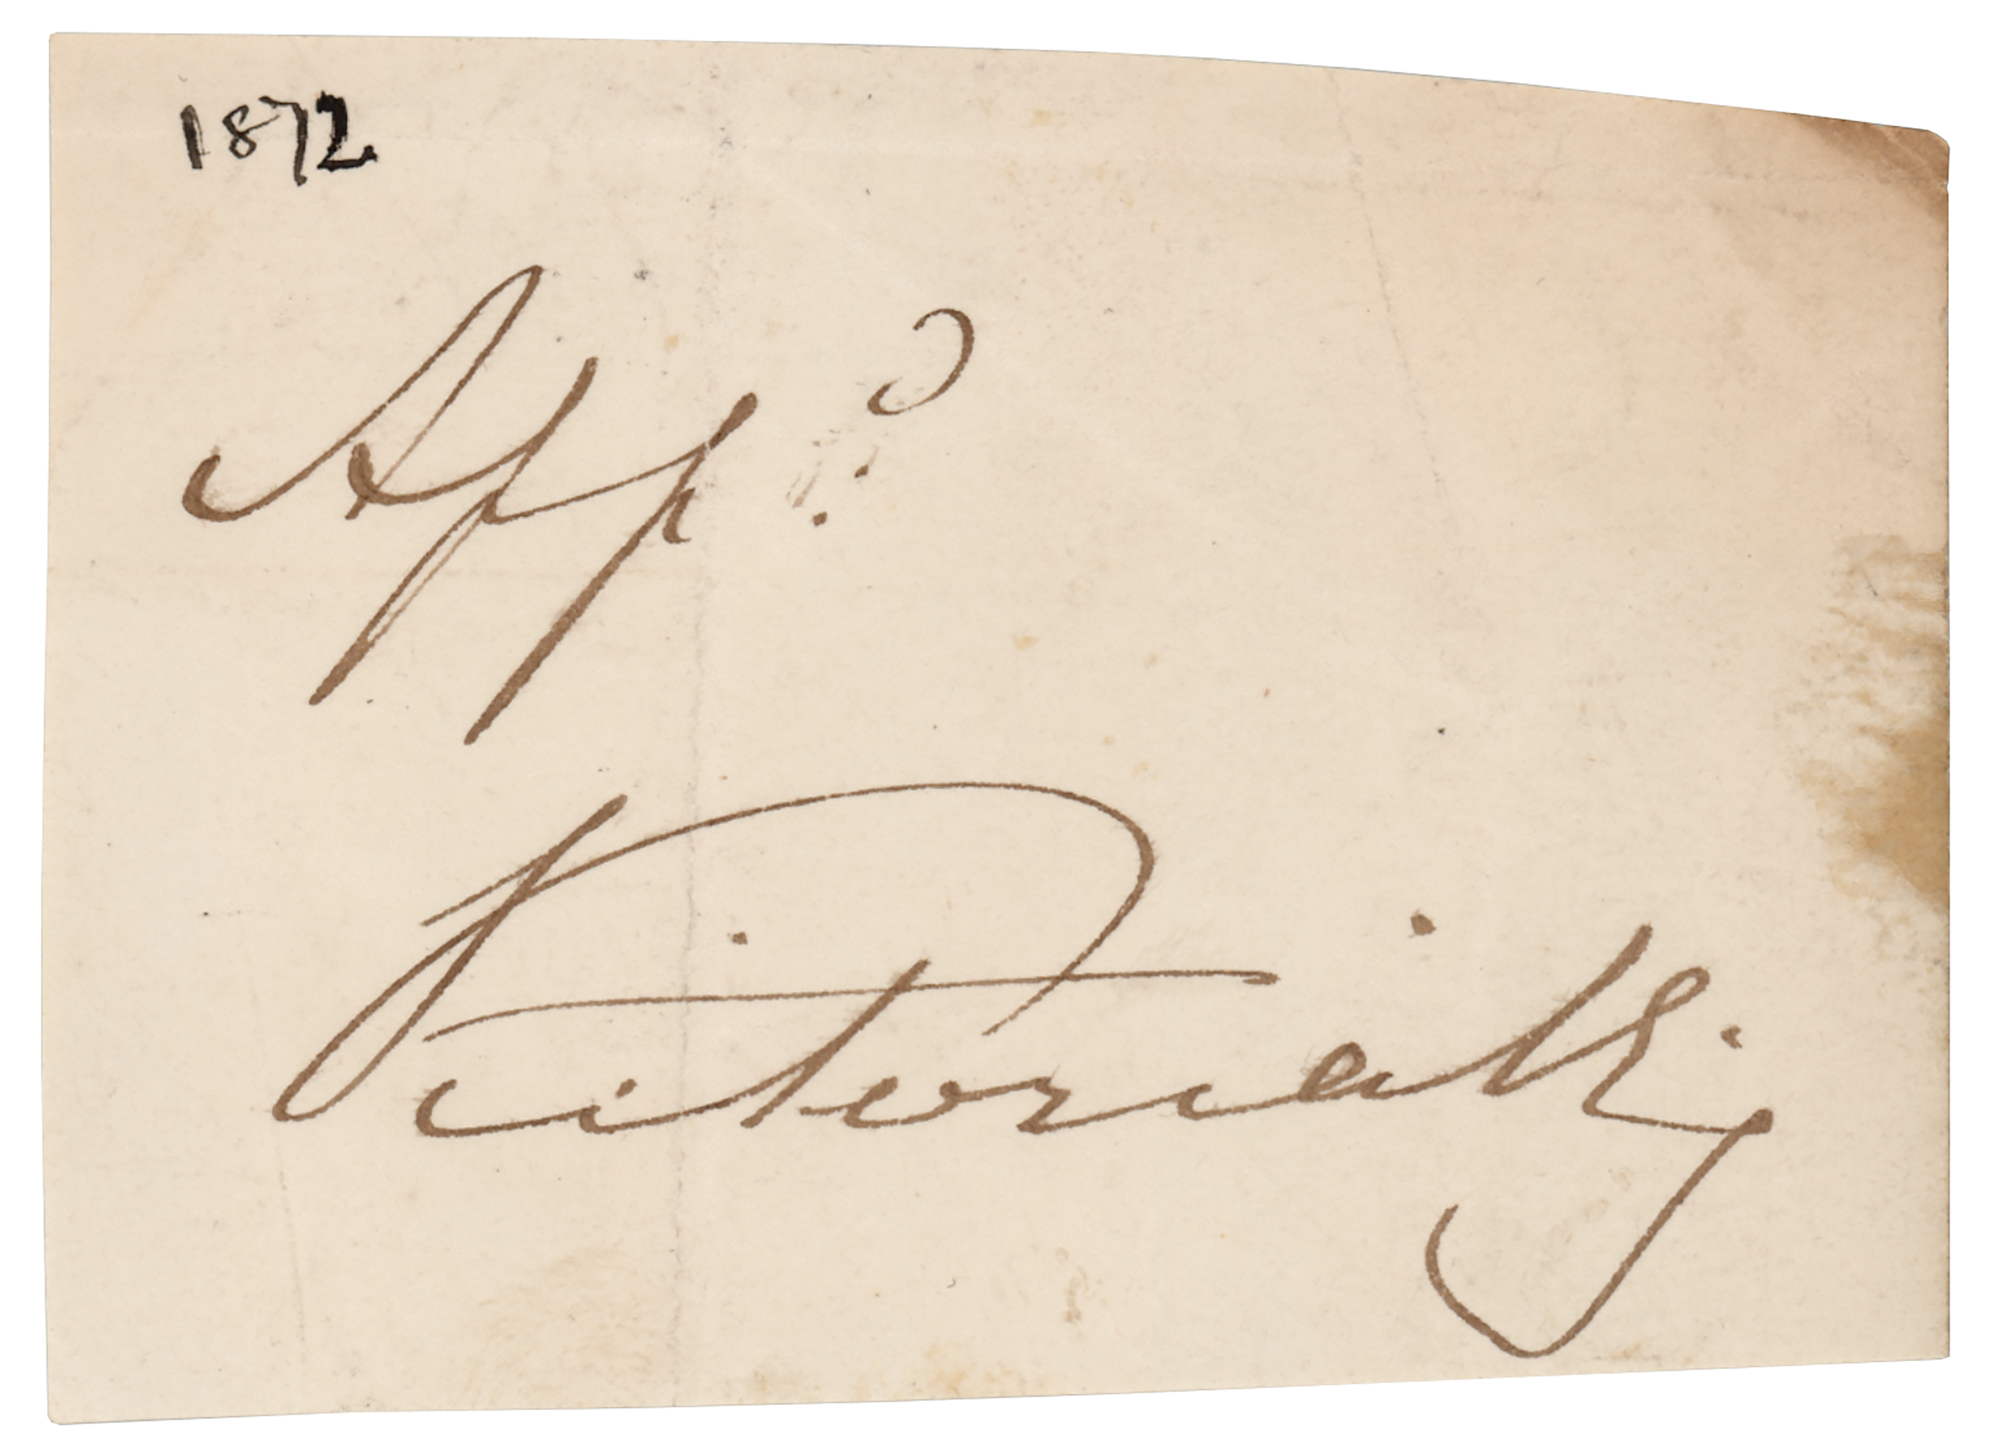 1872
App.d
Victoria R